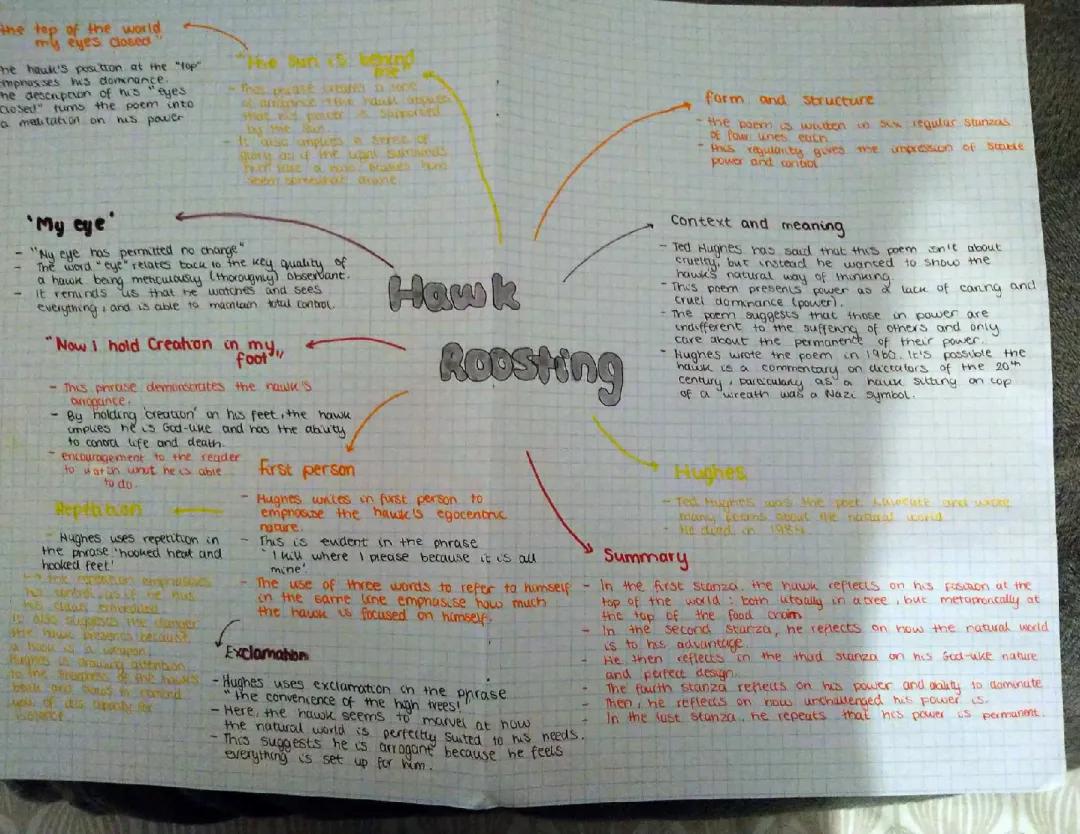 the top of the world
my eyes closed"
he hawk's position at the "top"
emphasises his dominance.
he description of his "eyes
closed" turns the poem into
a meditation on his power
"The sun is behind
me"
- This phrase creates a sense
of arrogance - the hawk
that his power is supported
by the sun.
- It also implies a sense of
glory as if the light surrounds
him like a halo, makes him
seem somewhat divine
form and structure
- the poem is written in six regular stanzas
of four lines each.
- this regularity gives the impression of stable
power and control
'My eye'
- "My eye has permitted no change"
- The word "eye" relates back to the key quality of
a hawk being meticulously (thoroughly) observant.
- It reminds us that he watches and sees
everything, and is able to maintain total control.
Context and meaning
- Ted Hughes has said that this poem isn't about
cruelty, but instead he wanted to show the
hawk's natural way of thinking.
- This poem presents power as a lack of caring and
cruel dominance (power).
- The poem suggests that those in power are
indifferent to the suffering of others and only
care about the permanence of their power.
- Hughes wrote the poem in 1960. It's possible the
hawk is a commentary on dictators of the 20th
century, particularly as a hawk sitting on top
of a wreath was a Nazi symbol.
Hawk
Roosting
"Now I hold Creation in my
foot"
- This phrase demonstrates the hawk's
arrogance.
- By holding 'creation' in his feet, the hawk
implies he is God-like and has the ability
to control life and death.
- encouragement to the reader
to watch what he is able
to do.
First person
- Hughes writes in first person to
emphasise the hawk's egocentric
nature.
- This is evident in the phrase
'I kill where I please because it is all
mine'.
- The use of three words to refer to himself
in the same line emphasise how much
the hawk is focused on himself.
Repetition
- Hughes uses repetition in
the phrase 'hooked head and
hooked feet'
↳ the repetition emphasises
his control, as if he has
his claws embedded
It also suggests the danger
the hawk presents because
a hook is a weapon.
Hughes is drawing attention
to the of the hawk's
beak and to remind
you of its capacity for
violence.
Exclamation
- Hughes uses exclamation in the phrase
"the convenience of the high trees!"
- Here, the hawk seems to marvel at how
the natural world is perfectly suited to his needs.
- This suggests he is arrogant because he feels
everything is set up for him.
Hughes
- Ted Hughes was the poet laureate and wrote
many poems about the natural world
- He died in
Summary
- In the first stanza, the hawk reflects on his position at the
top of the world: both literally in a tree, but metaphorically at
the top of the food chain
- In the second stanza, he reflects on how the natural world
is to his advantage.
- He then reflects in the third stanza on his God-like nature
and perfect design.
- The fourth stanza reflects on his power and ability to dominate
- Then, he reflects on how unchallenged his power is.
- In the last stanza, he repeats that his power is permanent.